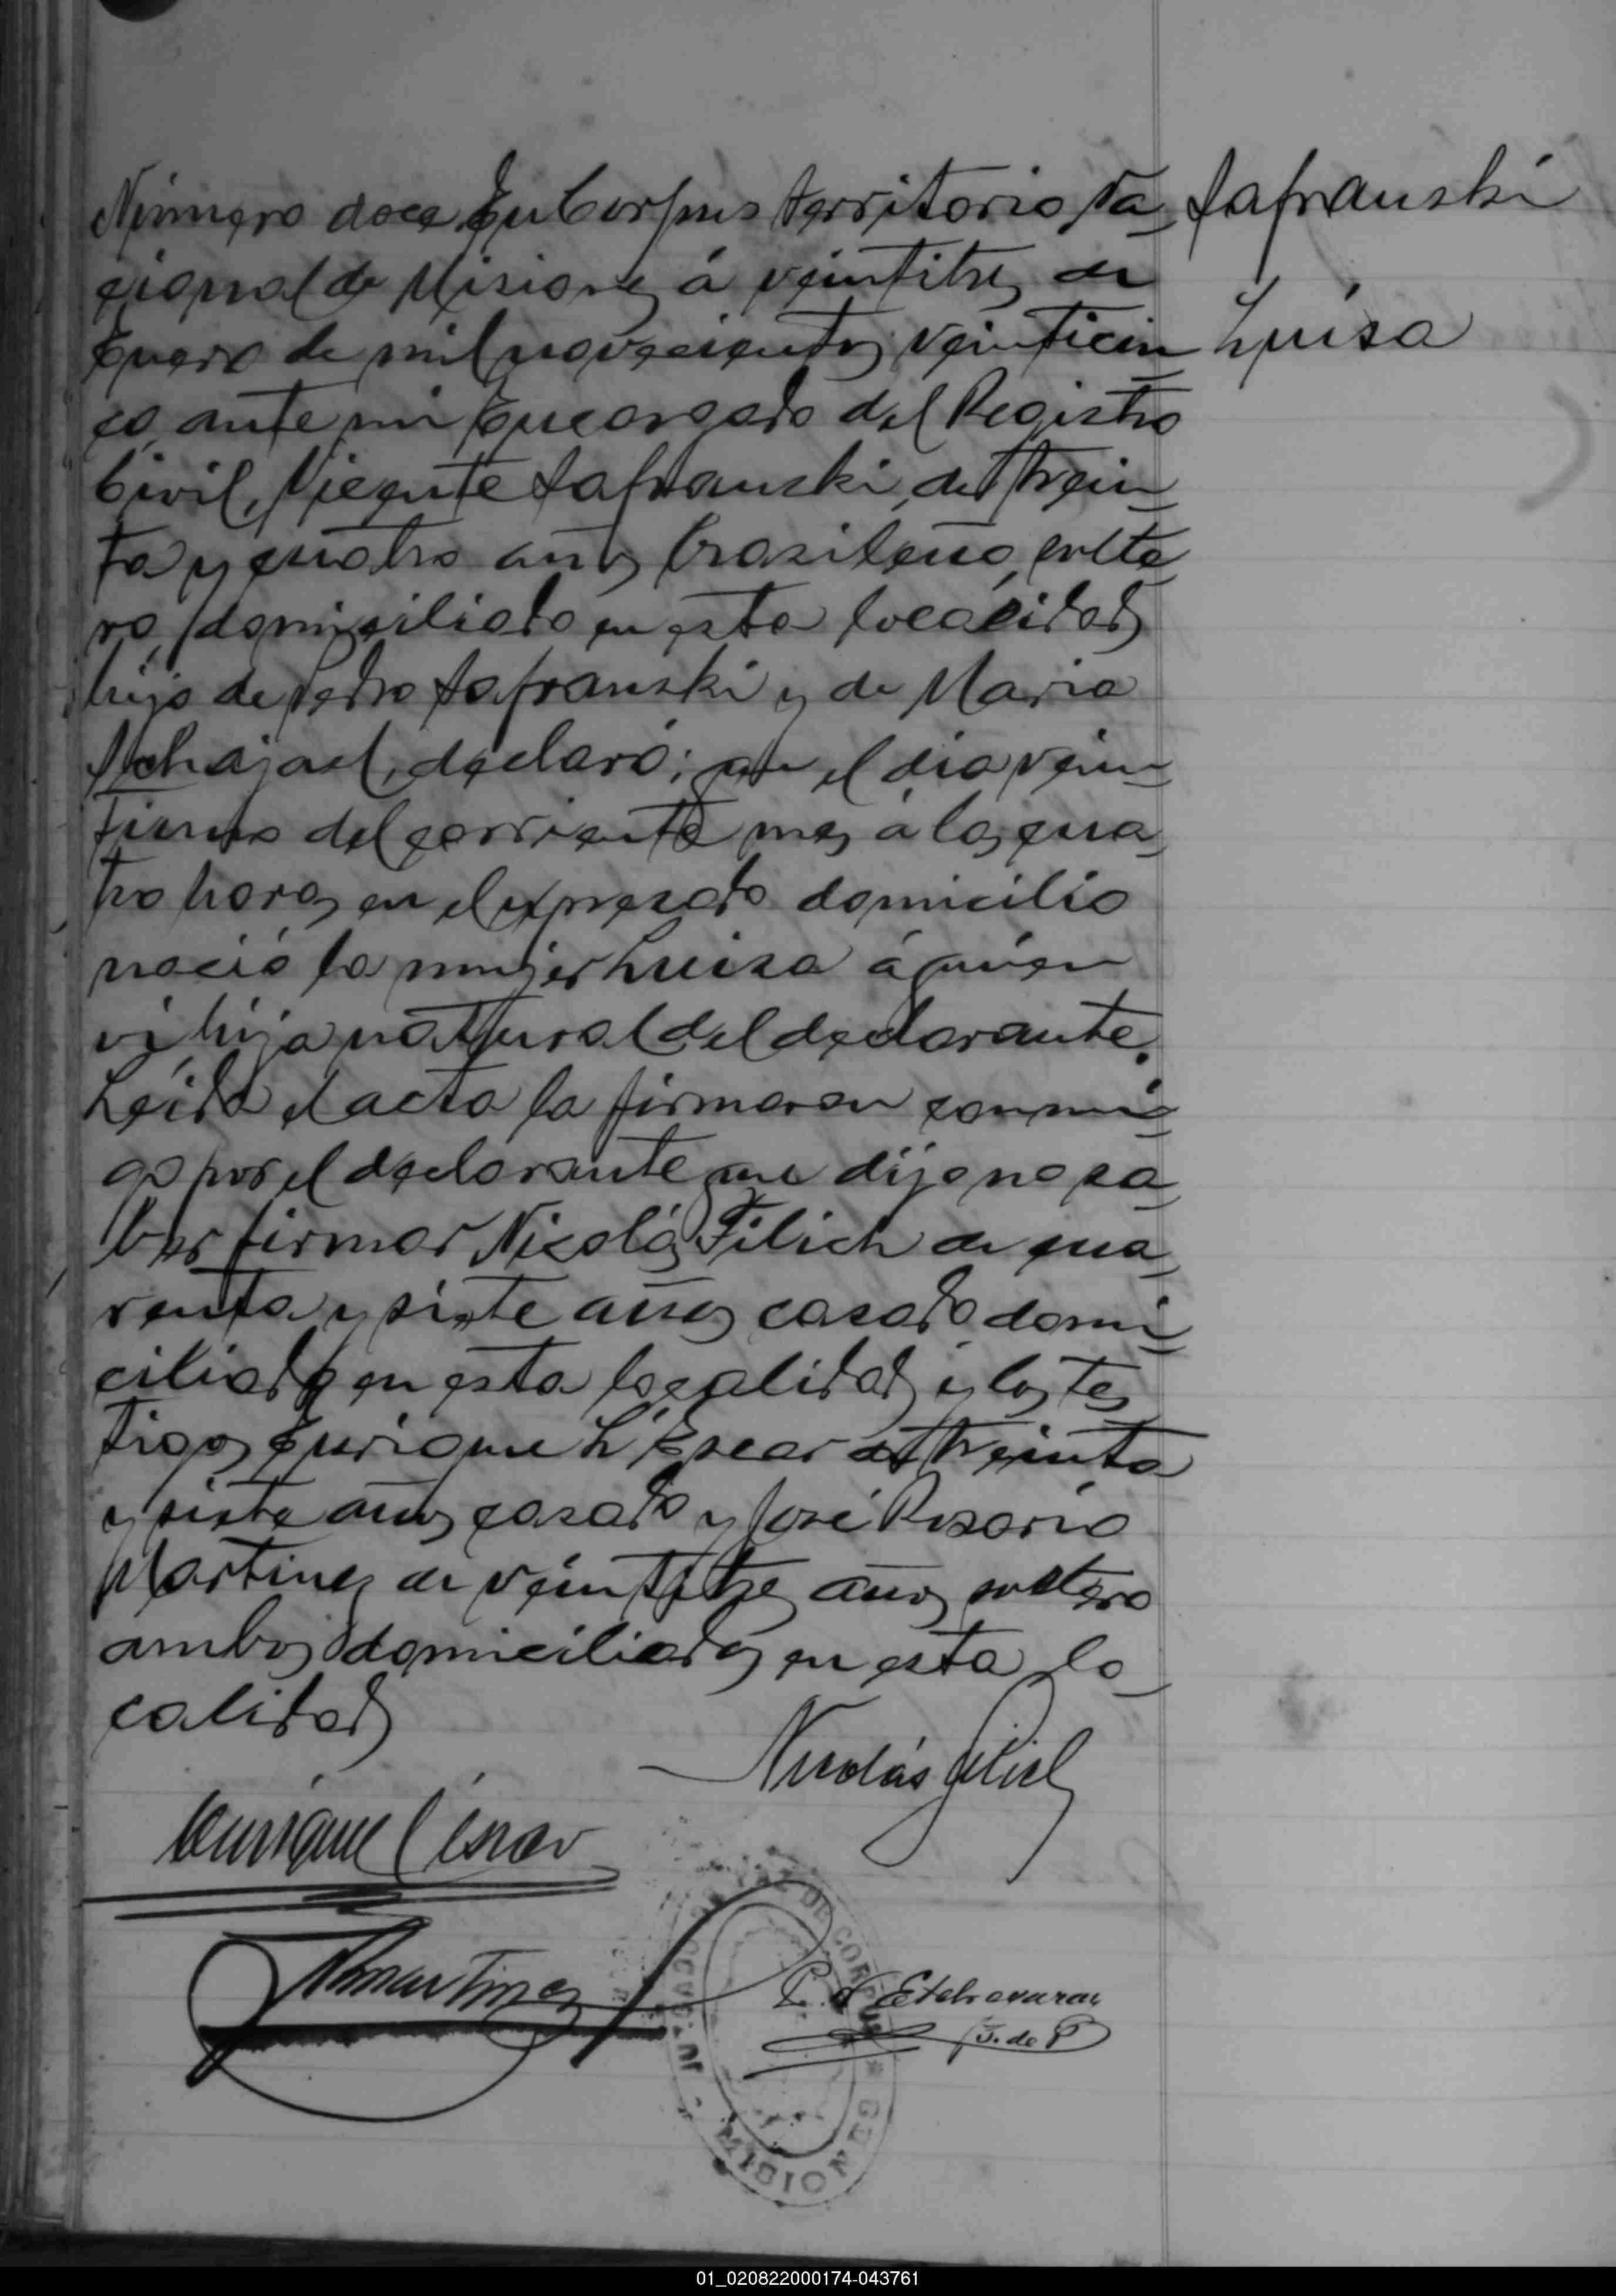 Número doce. En Corpus territorio Na_
cional de Misiones á veintitres de
Enero de mil novecientos veinticin_
co, ante mi Encargado del Registro
Civil, Vicente Safranski, de trein_
ta y cuatro años, brasileño, solte_
ro, domiciliado en esta localidad
hijo de Pedro Safranski y de Maria
declaró; que el dia vein_
tiuno del corriente mes á las cua_
tro horas en el expresado domicilio
nació la mujer Luisa á quién
vi hija natural del declarante.
Leida el acta la firmaron conmi_
go por el declarante que dijo no sa_
ber firmar Nicolás Filich de cua_
renta y siete años casado domi_
ciliado en esta localidad y los tes_
tigos Enrique L'Escar de treinta
y siete años casado y José Rosario
Martinez de veintitres años soltero
ambos domiciliados en esta lo_
calidad
Safranski
Luisa
Nicolás Filich
Enrique Léscar
Martinez
Etchevaray
J. de P
JUZGADO DE PAZ DE CORPUS
* MISIONES -
01_020822000174-043761